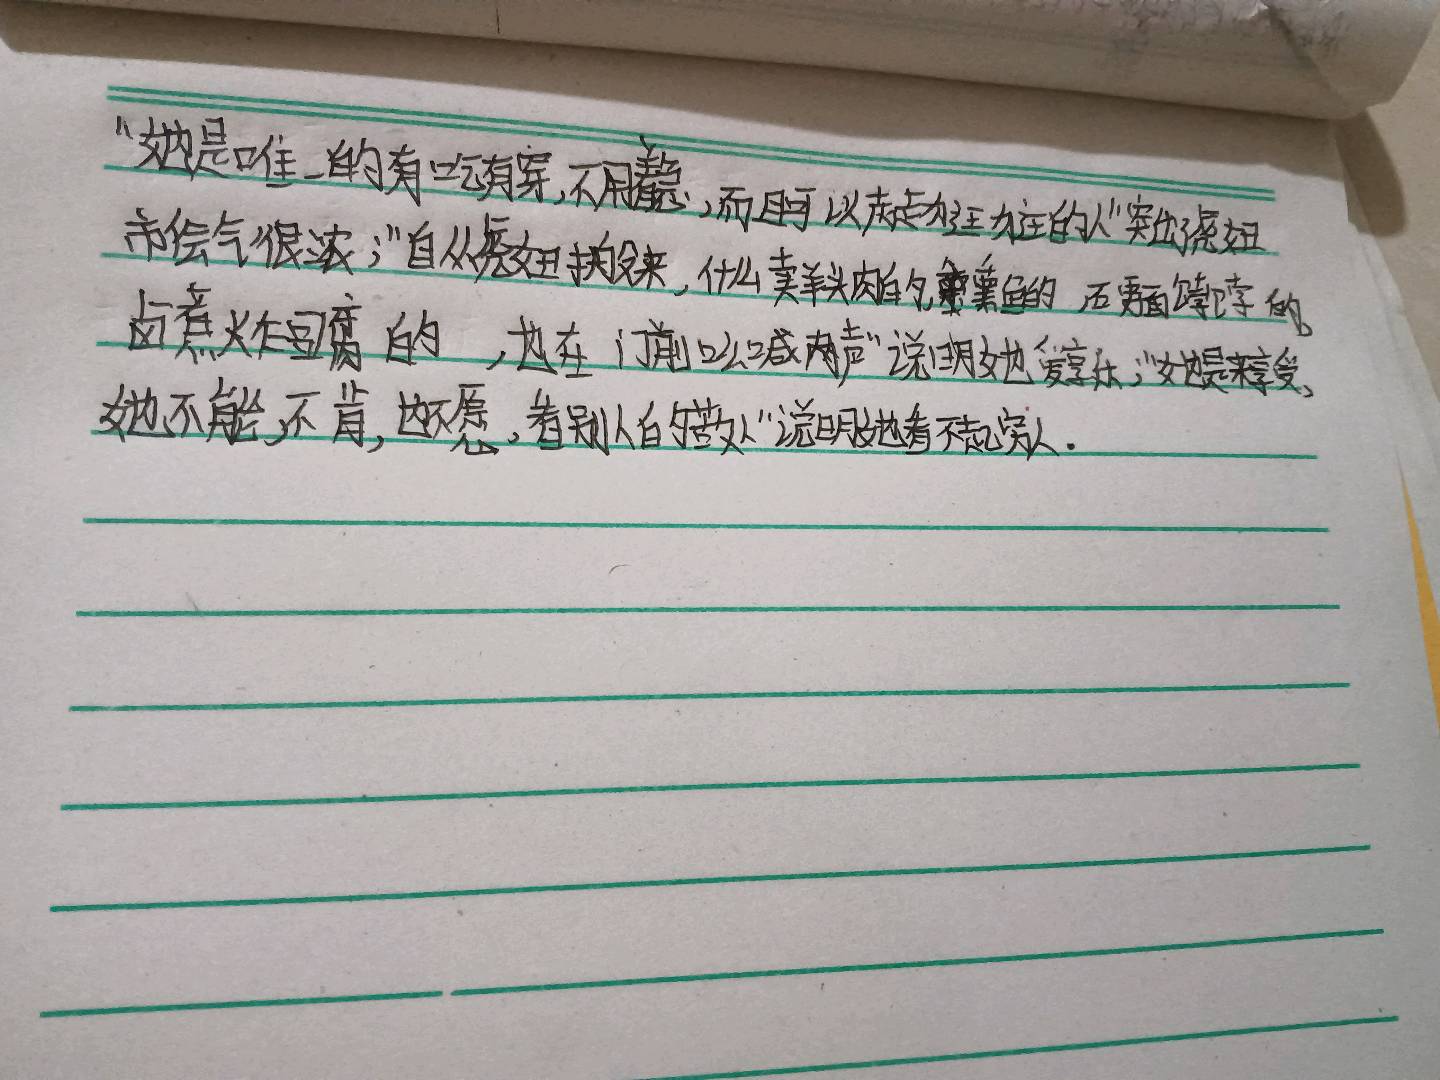 “她是唯一的有吃有穿,不用着急,而且可以走走逛逛的人”突出虎妞
市侩气很浓;“自从虎妞搬来,什么卖羊头肉的,熏鱼的,硬面饽饽的,
卤煮炸豆腐的,也在门前吆喊两声”说明她爱享乐;“她是来享受,
她不能,不肯,也不愿,看别人的苦处”说明她看不起穷人.